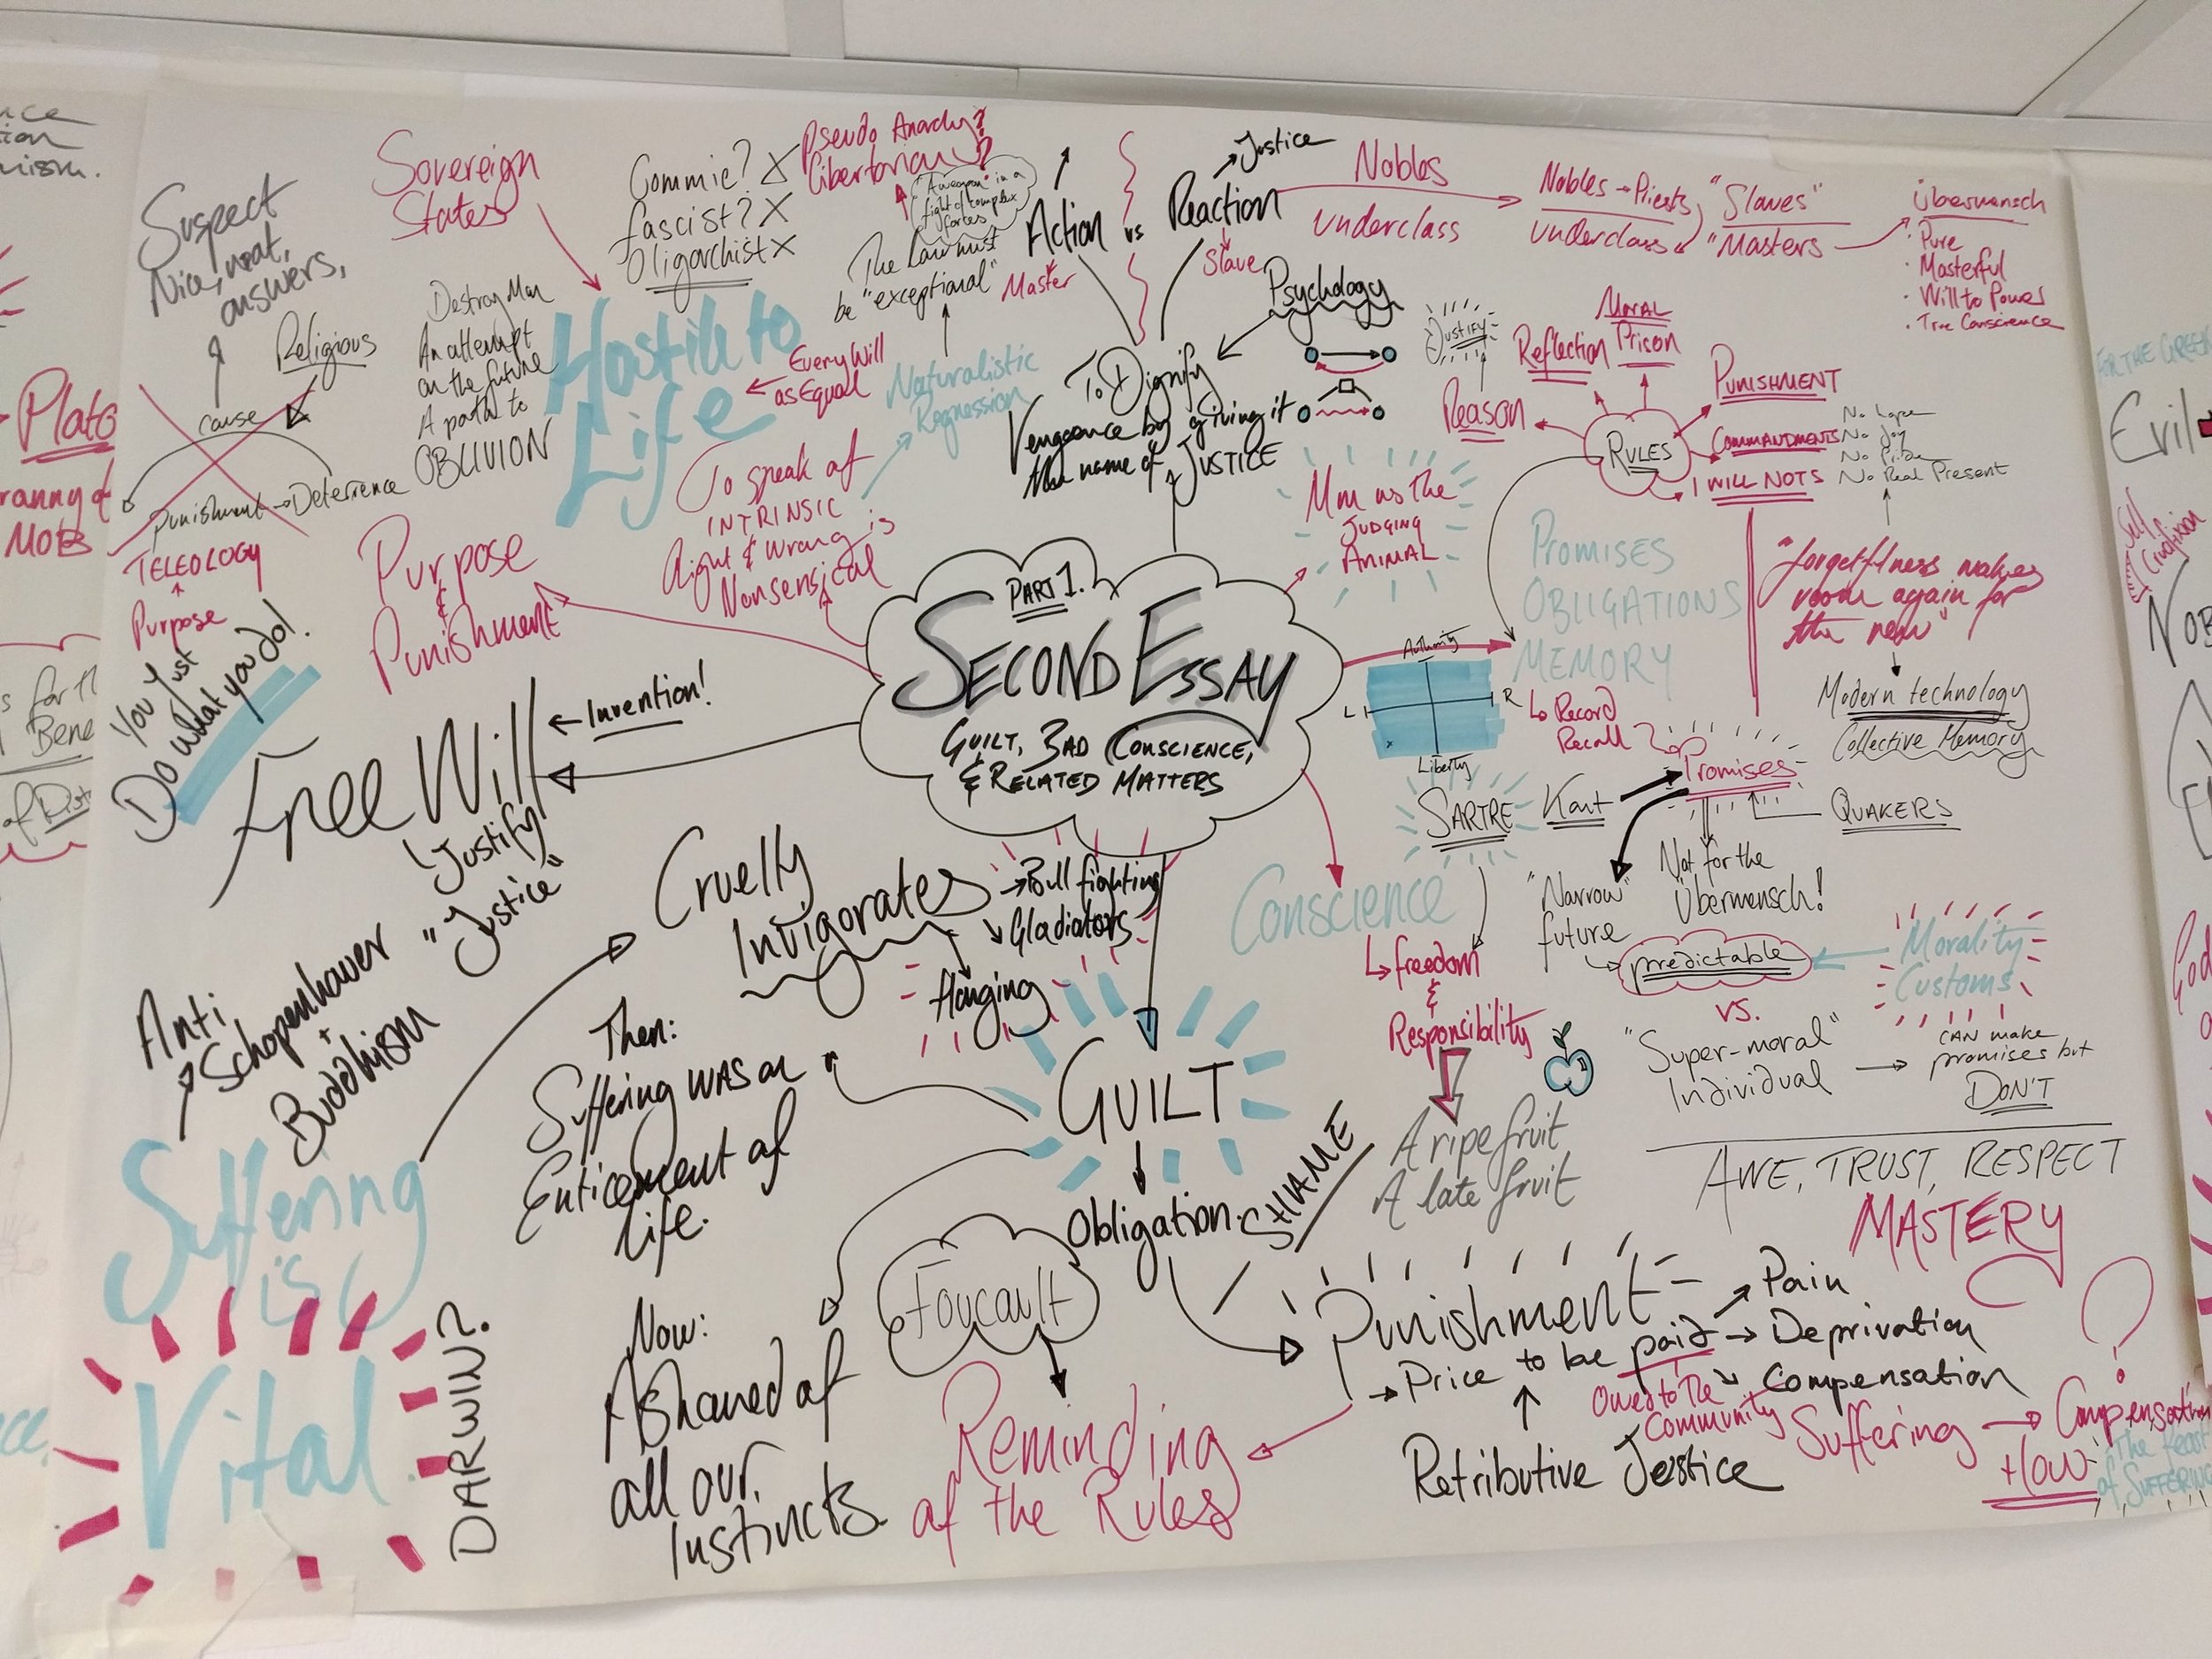 Suspect
Nice, neat,
answers,
Religious
cause
Punishment → Deterrence
TELEOLOGY
↑
Purpose
Plato
MOBs
Sovereign
States
Destroy Man
An attempt
on the future
A path to
OBLIVION
Commie? X
fascist? X
Oligarchist X
Pseudo Anarchy?
Libertarian?
"A weapon" in a
fight of complex
forces
The Law must
be "exceptional"
Hostile to
Life
Every Will
as Equal
Naturalistic
Regression
To speak of
INTRINSIC
Right & Wrong is
Nonsensical
Purpose
&
Punishment
Action
vs
Reaction
Justice
Master
Slave
Nobles
Underclass
Nobles → Priests
Underclass
"Slaves"
"Masters
Übermensch
· Pure
· Masterful
· Will to Power
· True Conscience
Psychology
To Dignify
Vengeance by giving it
the name of JUSTICE
JUSTIFY
Reason
Reflection
MORAL
Prison
RULES
PUNISHMENT
COMMANDMENTS
I WILL NOTS
No hope
No Joy
No Pride
No Real Present
as the
JUDGING
ANIMAL
PROMISES
OBLIGATIONS
MEMORY
↳ Record
Recall
"forgetfulness makes
room again for
the new"
Modern technology
Collective Memory
PART 1.
SECOND ESSAY
GUILT, BAD CONSCIENCE,
& RELATED MATTERS
Authority
L
R
Liberty
SARTRE
Kant
Promises
QUAKERS
Not for the
Übermensch!
"Narrow"
future
predictable
Morality
Customs
VS.
"Super-moral"
Individual
CAN make
promises but
DON'T
AWE, TRUST, RESPECT
MASTERY
You Just
Do what you do!
Free Will
Invention!
Justify
"Justice"
Anti
Schopenhauer
+
Buddhism
Suffering
is
Vital
DARWIN?
Cruelty
Invigorates
→ Bull fighting
Gladiators
Hanging
Then:
Suffering WAS an
Enticement of
life.
Now:
Ashamed of
all our
Instincts
GUILT
Obligation
SHAME
Foucault
Reminding
of the Rules
Conscience
↳ freedom
&
Responsibility
A ripe fruit
A late fruit
Punishment
→ Price to be paid
→ Pain
→ Deprivation
Compensation
Owed to the
Community
Retributive Justice
Suffering → Compensation
HOW
?
"The feast
of SUFFERING
FOR THE GREEK
Evil
Self